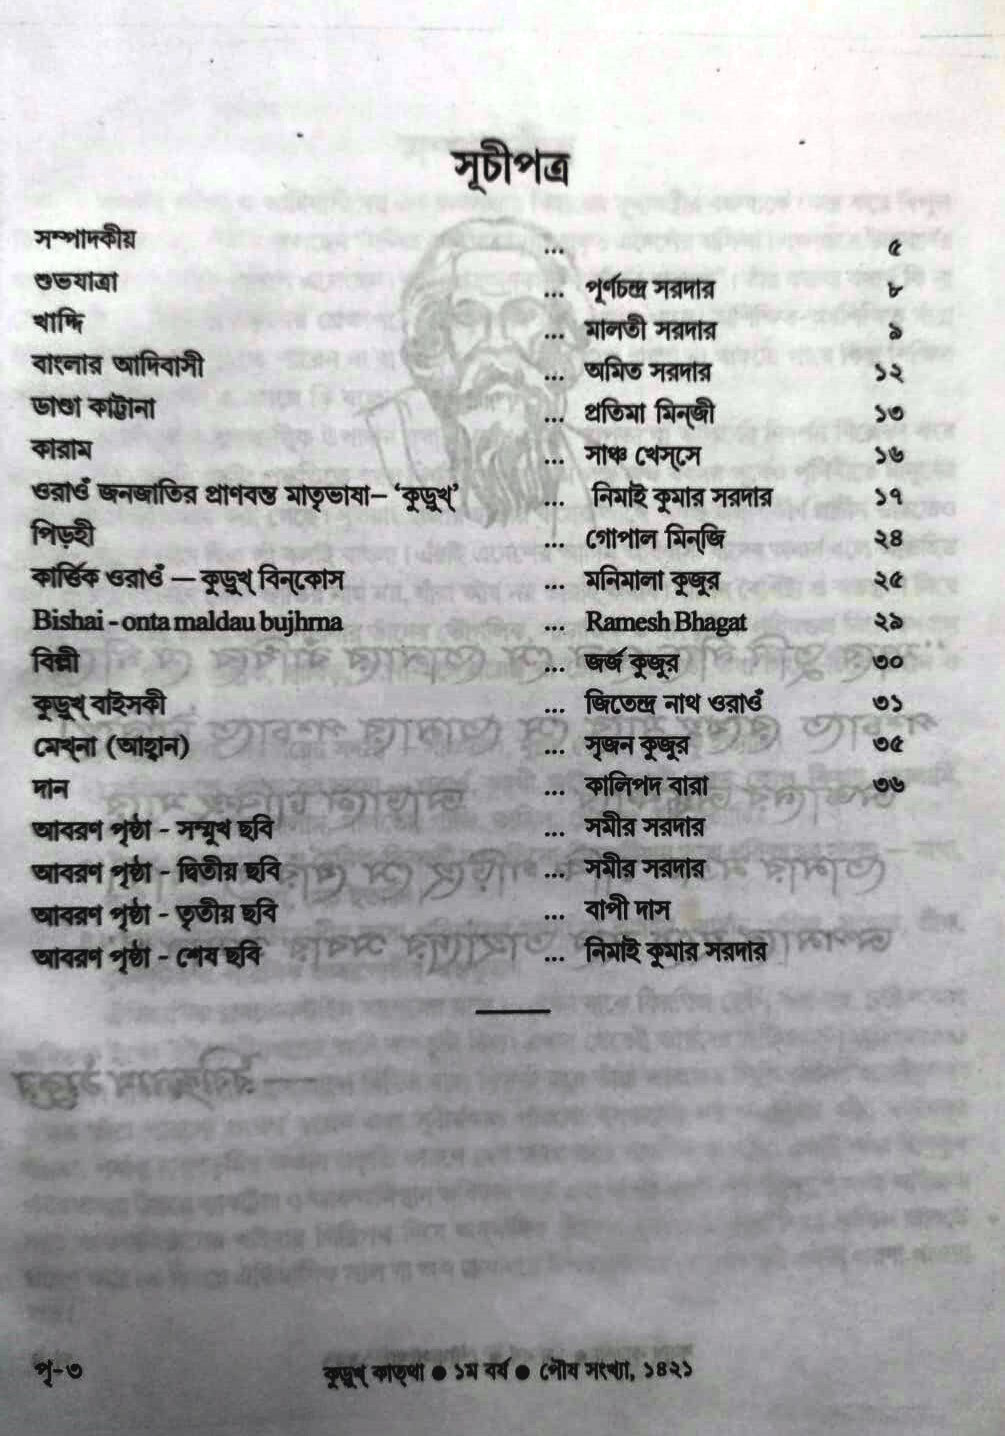 সূচীপত্র
সম্পাদকীয় ... ৫
শুভযাত্রা ... পূর্ণচন্দ্র সরদার ৮
খাদ্দি ... মালতী সরদার ৯
বাংলার আদিবাসী ... অমিত সরদার ১২
ডাণ্ডা কাট্টানা ... প্রতিমা মিন্‌জী ১৩
কারাম ... সাঞ্চ খেস্‌সে ১৬
ওরাওঁ জনজাতির প্রাণবন্ত মাতৃভাষা– ‘কুড়ুখ্’ ... নিমাই কুমার সরদার ১৭
পিড়হী ... গোপাল মিন্‌জি ২৪
কার্ত্তিক ওরাওঁ — কুড়ুখ্ বিন্‌কোস ... মনিমালা কুজুর ২৫
Bishai - onta maldau bujhrna ... Ramesh Bhagat ২৯
বিল্লী ... জর্জ কুজুর ৩০
কুড়ুখ্ বাইসকী ... জিতেন্দ্র নাথ ওরাওঁ ৩১
মেখ্‌না (আহ্বান) ... সৃজন কুজুর ৩৫
দান ... কালিপদ বারা ৩৬
আবরণ পৃষ্ঠা - সম্মুখ ছবি ... সমীর সরদার
আবরণ পৃষ্ঠা - দ্বিতীয় ছবি ... সমীর সরদার
আবরণ পৃষ্ঠা - তৃতীয় ছবি ... বাপী দাস
আবরণ পৃষ্ঠা - শেষ ছবি ... নিমাই কুমার সরদার
পৃ-৩ কুড়ুখ্ কাত্‌থা ● ১ম বর্ষ ● পৌষ সংখ্যা, ১৪২১